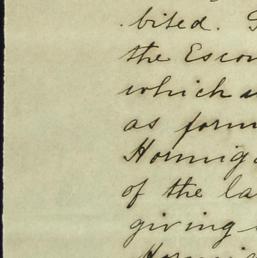 bited.
the Escon
which
as form
Hormig
of the la
giving
Hormig